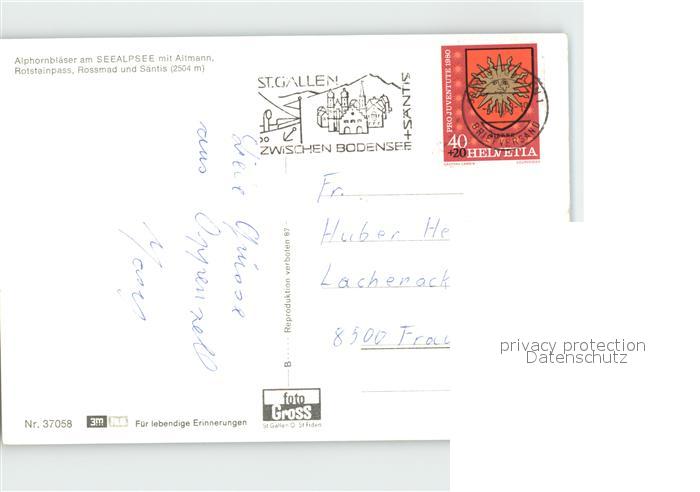 Alphornbläser am SEEALPSEE mit Altmann,
Rotsteinpass, Rossmad und Säntis (2504 m)
ST. GALLEN
+ SÄNTIS
ZWISCHEN BODENSEE
BRIEFVERSAND
PRO JUVENTUTE 1980
40
+20 HELVETIA
Liebe Grüsse
aus Appenzell
Fr.
Huber He
Lacherack
8500 Frau
B Reproduktion verboten 87
Nr. 37058
3m
Für lebendige Erinnerungen
foto
Gross
St. Gallen O St Fiden
privacy protection
Datenschutz